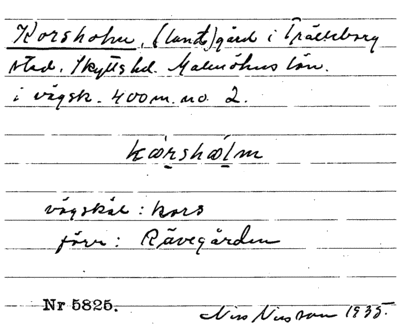 Korsholm, (lants)gård i Trälleborg
stad. Skytts hd. Malmöhus län.
i vägsk. 400 m. no 2.
kɷrshɷlm
vägskäl : kors
förr : Rävegården
Nr 5825.
Nils Nilsson 1935.